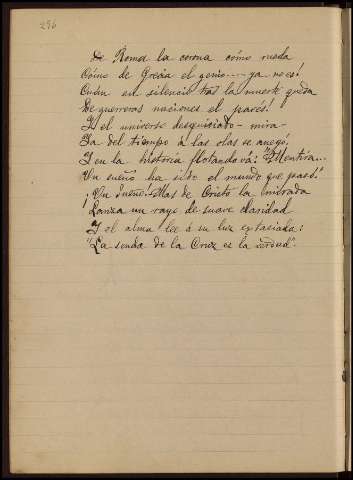 256
De Roma la corona cómo rueda
Cómo de Grecia el genio---- ya no es!
Cuán en silencio tras la muerte queda
De guerreras naciones el pavés!
Y el universo desquiciado - mira -
Ya del tiempo á las olas se anegó,
Y en la historia flotando vá: "Mentira...
Un sueño ha sido el mundo que pasó."
¡Un sueño! - Mas de Cristo la mirada
Lanza un rayo de suave claridad
Y el alma lee á su luz extasiada:
"La senda de la Cruz es la verdad".